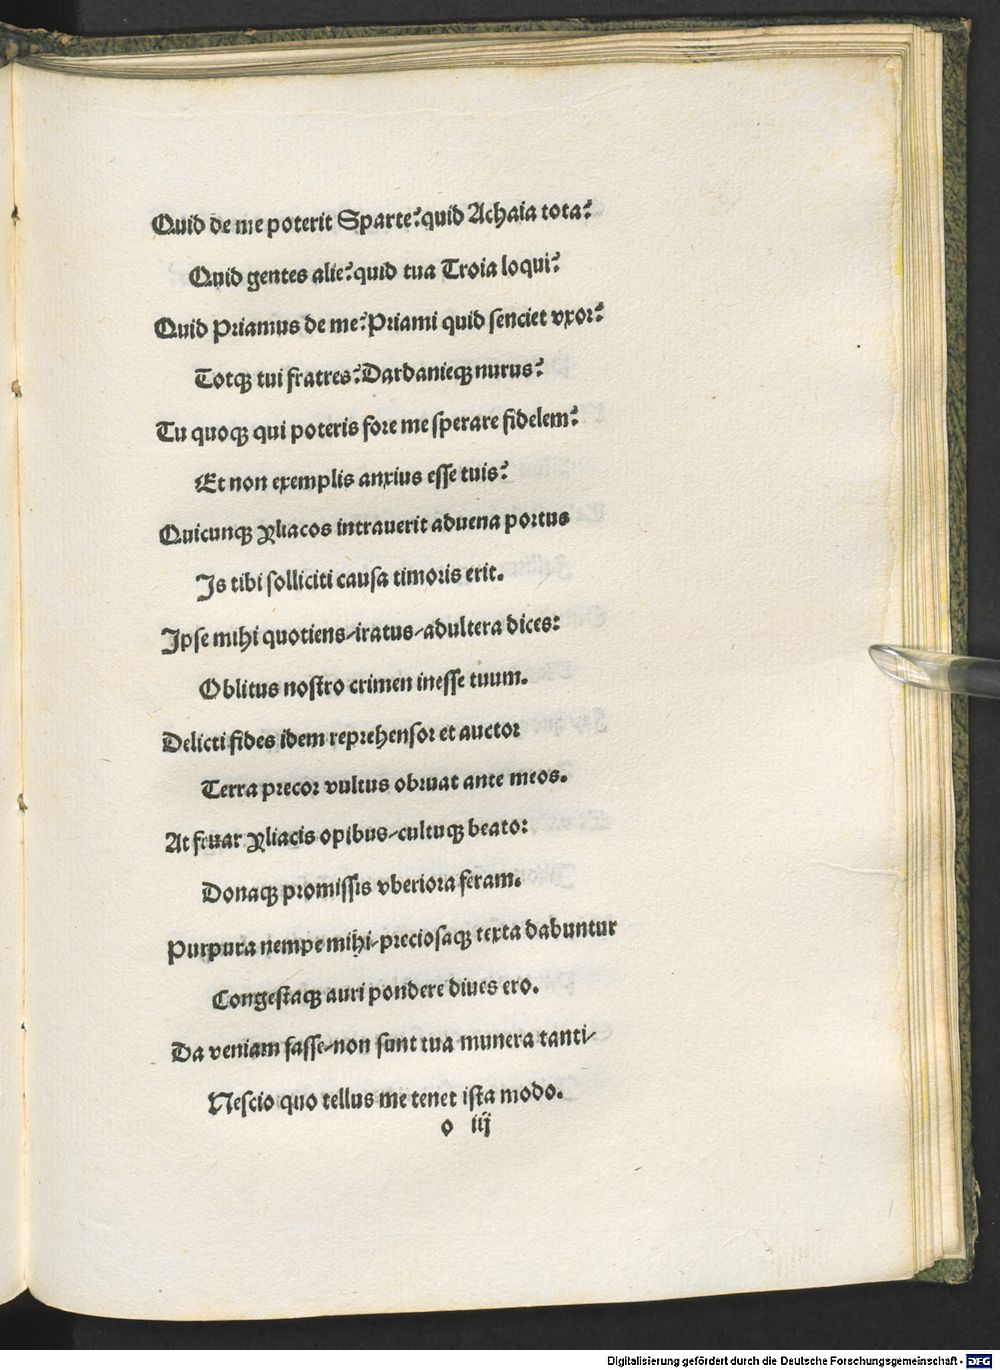 Quid de me poterit Sparte? quid Achaia tota?
Quid gentes alie? quid tua Troia loqui?
Quid Priamus de me? Priami quid senciet vxor?
Totqꝫ tui fratres? Dardanieqꝫ nurus?
Tu quoqꝫ qui poteris fore me sperare fidelem?
Et non exemplis anxius esse tuis?
Quicunqꝫ Yliacos intrauerit aduena portus
Is tibi solliciti causa timoris erit.
Ipse mihi quotiens/iratus/adultera dices:
Oblitus nostro crimen inesse tuum.
Delicti fides idem reprehensor et auctor
Terra precor vultus obruat ante meos.
At fruar Yliacis opibus/cultuqꝫ beato:
Donaqꝫ promissis vberiora feram.
Purpura nempe mihi/preciosaqꝫ texta dabuntur
Congestaqꝫ auri pondere diues ero.
Da veniam fasse/non sunt tua munera tanti/
Nescio quo tellus me tenet ista modo.
o iij
Digitalisierung gefördert durch die Deutsche Forschungsgemeinschaft - DFG